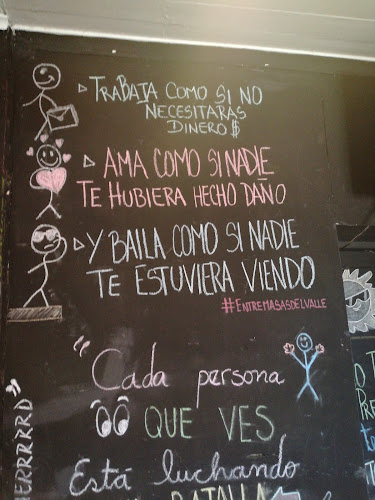 TRABAJA COMO SI NO
NECESITARAS
DINERO $
AMA COMO SI NADIE
TE HUBIERA HECHO DAÑO
Y BAILA COMO SI NADIE
TE ESTUVIERA VIENDO
#ENTREMASASDELVALLE
"Cada persona
QUE VES
Está luchando
BATALLA